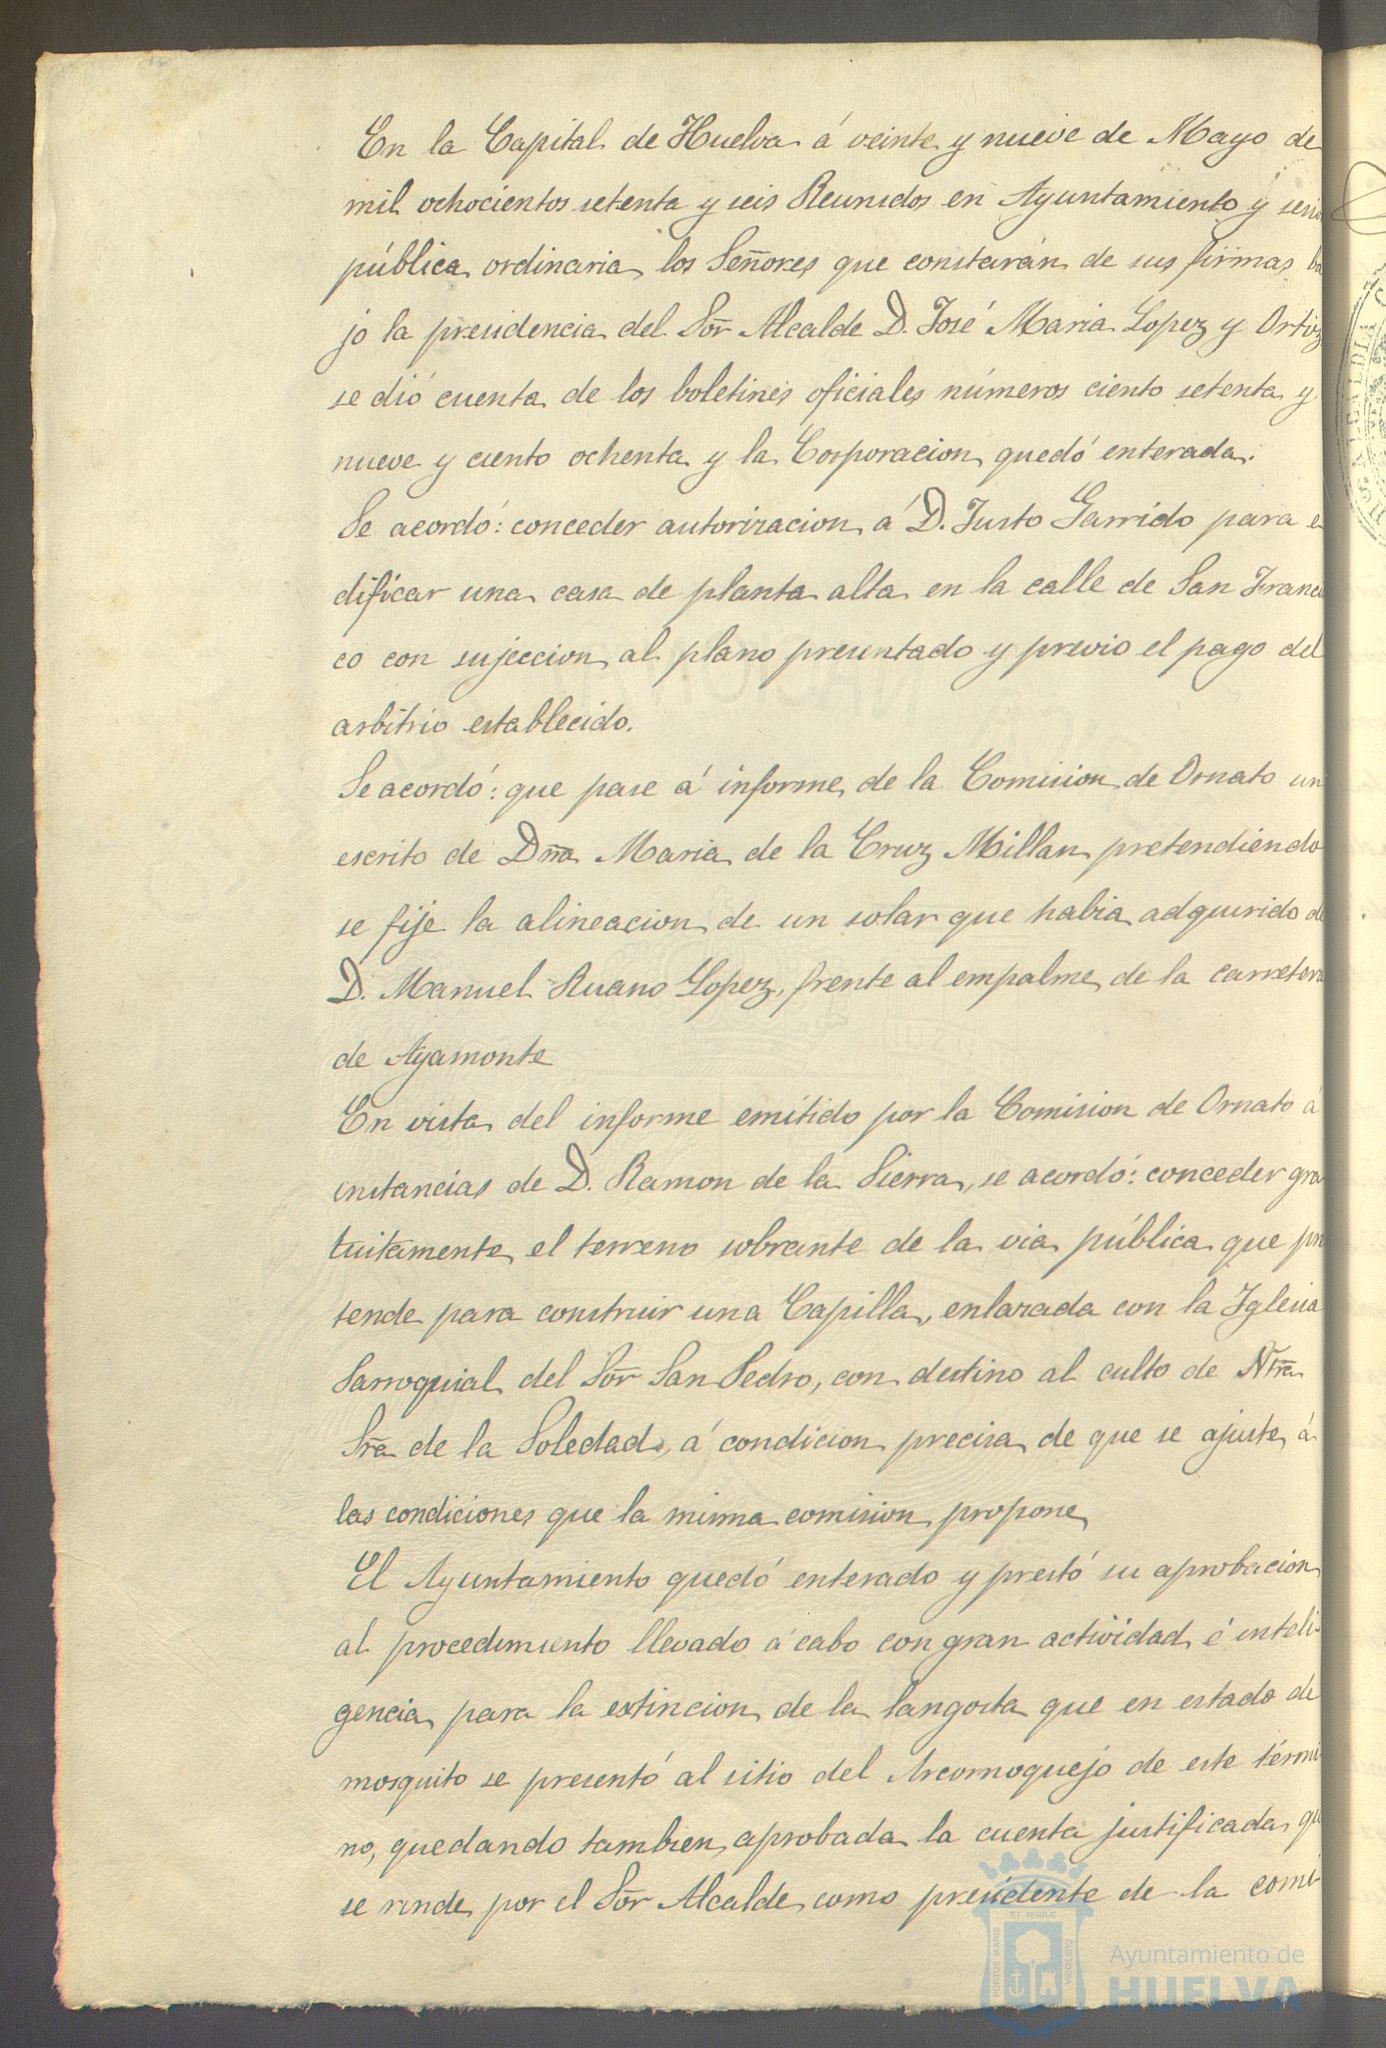 En la Capital de Huelva á veinte y nueve de Mayo de
mil ochocientos setenta y seis Reunidos en Ayuntamiento y sesio
pública ordinaria los Señores que constarán de sus firmas ba
jo la presidencia del Sor Alcalde D. José Maria Lopez y Ortiz
se dió cuenta de los boletines oficiales números ciento setenta y
nueve y ciento ochenta y la Corporacion quedó enterada.
Se acordó: conceder autorizacion á D. Justo Garrido para e
dificar una casa de planta alta en la calle de San Francis
co con sujeccion al plano presentado y previo el pago del
arbitrio establecido.
Se acordó: que pase á informe de la Comision de Ornato un
escrito de Dña Maria de la Cruz Millan pretendiendo
se fije la alineacion de un solar que habia adquirido de
D. Manuel Ruano Lopez, frente al empalme de la carretera
de Ayamonte
En vista del informe emitido por la Comision de Ornato á
instancias de D. Ramon de la Sierra, se acordó: conceder gra
tuitamente el terreno sobrante de la via pública que pre
tende para construir una Capilla, enlazada con la Iglesia
Parroquial del Sor San Pedro, con destino al culto de Ntra
Sra de la Soledad, á condicion precisa de que se ajuste á
las condiciones que la misma comision propone
El Ayuntamiento quedó enterado y prestó su aprobacion
al procedimiento llevado á cabo con gran actividad é inteli-
gencia para la extincion de la langosta que en estado de
mosquito se presentó al sitio del Arcornoquejo de este térmi
no, quedando tambien aprobada la cuenta justificada que
se rinde por el Sor Alcalde como presidente de la comi-
Ayuntamiento de
HUELVA